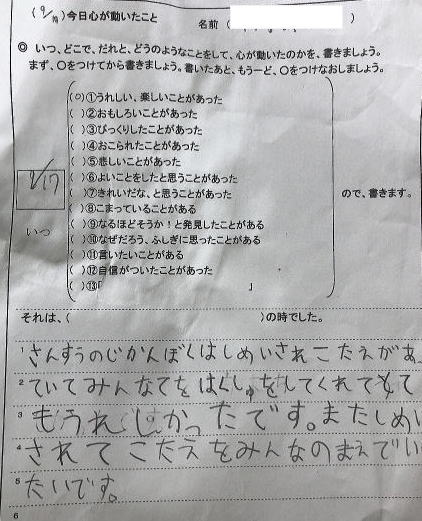 (9/19) 今日心が動いたこと 名前 ( )
◎ いつ、どこで、だれと、どうのようなことをして、心が動いたのかを、書きましょう。
まず、○をつけてから書きましょう。書いたあと、もうーど、○をつけなおしましょう。
(○)①うれしい、楽しいことがあった
( )②おもしろいことがあった
( )③びっくりしたことがあった
( )④おこられたことがあった
( )⑤悲しいことがあった
( )⑥よいことをしたと思うことがあった
( )⑦きれいだな、と思うことがあった
( )⑧こまっていることがある
( )⑨なるほどそうか!と発見したことがある
( )⑩なぜだろう、ふしぎに思ったことがある
( )⑪言いたいことがある
( )⑫自信がついたことがあった
( )⑬「 」
9/17
いつ
ので、書きます。
それは、( )の時でした。
1 さんすうのじかんぼくはしめいされこたえがあ
2 ていてみんなてをはくしゅをしてくれてとて
3 もうれしかったです。またしめい
4 されてこたえをみんなのまえでい
5 たいです。
6